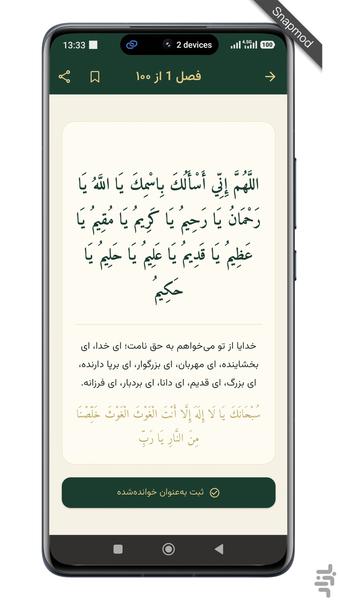 Snapmod
13:33
2 devices
4.5G
100
فصل 1 از ۱۰۰
اللَّهُمَّ إِنِّي أَسْأَلُكَ بِاسْمِكَ يَا اللَّهُ يَا
رَحْمَانُ يَا رَحِيمُ يَا كَرِيمُ يَا مُقِيمُ يَا
عَظِيمُ يَا قَدِيمُ يَا عَلِيمُ يَا حَلِيمُ يَا
حَكِيمُ
خدایا از تو می‌خواهم به حق نامت؛ ای خدا، ای
بخشاینده، ای مهربان، ای بزرگوار، ای برپا دارنده،
ای بزرگ، ای قدیم، ای دانا، ای بردبار، ای فرزانه.
سُبْحَانَكَ يَا لَا إِلَهَ إِلَّا أَنْتَ الْغَوْثَ الْغَوْثَ خَلِّصْنَا
مِنَ النَّارِ يَا رَبِّ
ثبت به‌عنوان خوانده‌شده